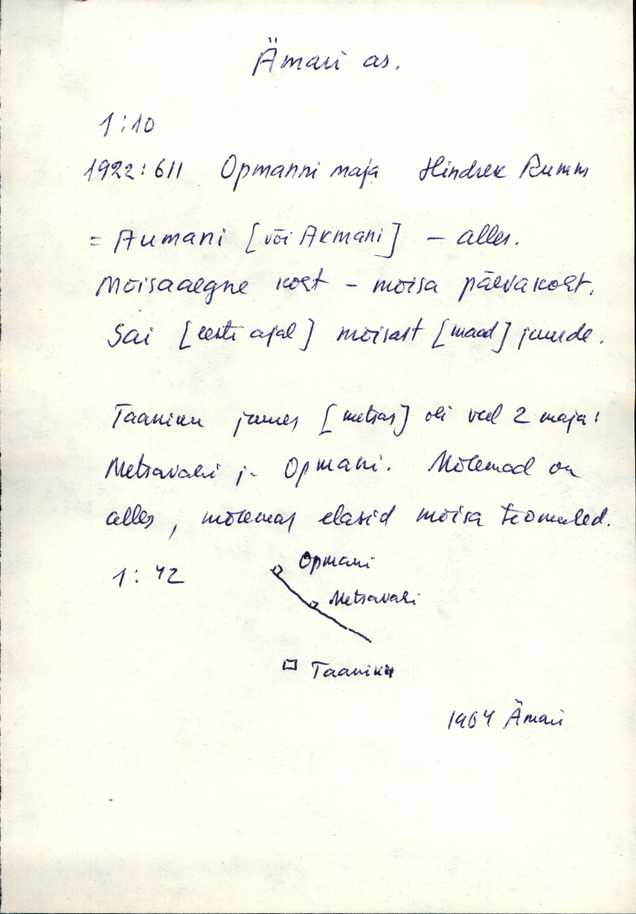 Ämari as.
1:10
1922:611 Opmanni maja Hindrek Rumm
= Aumani [või Akmani] – alles.
Mõisaaegne koht – mõisa päevakoht.
Sai [eesti ajal] mõisast [maad] juurde.
Taaniku juures [metsas] oli veel 2 maja:
Metsavahi j- Opmani. Mõlemad on
alles, mõlemas elasid mõisa teomehed.
1:42
Opmani
Metsavahi
Taaniku
1964 Ämari